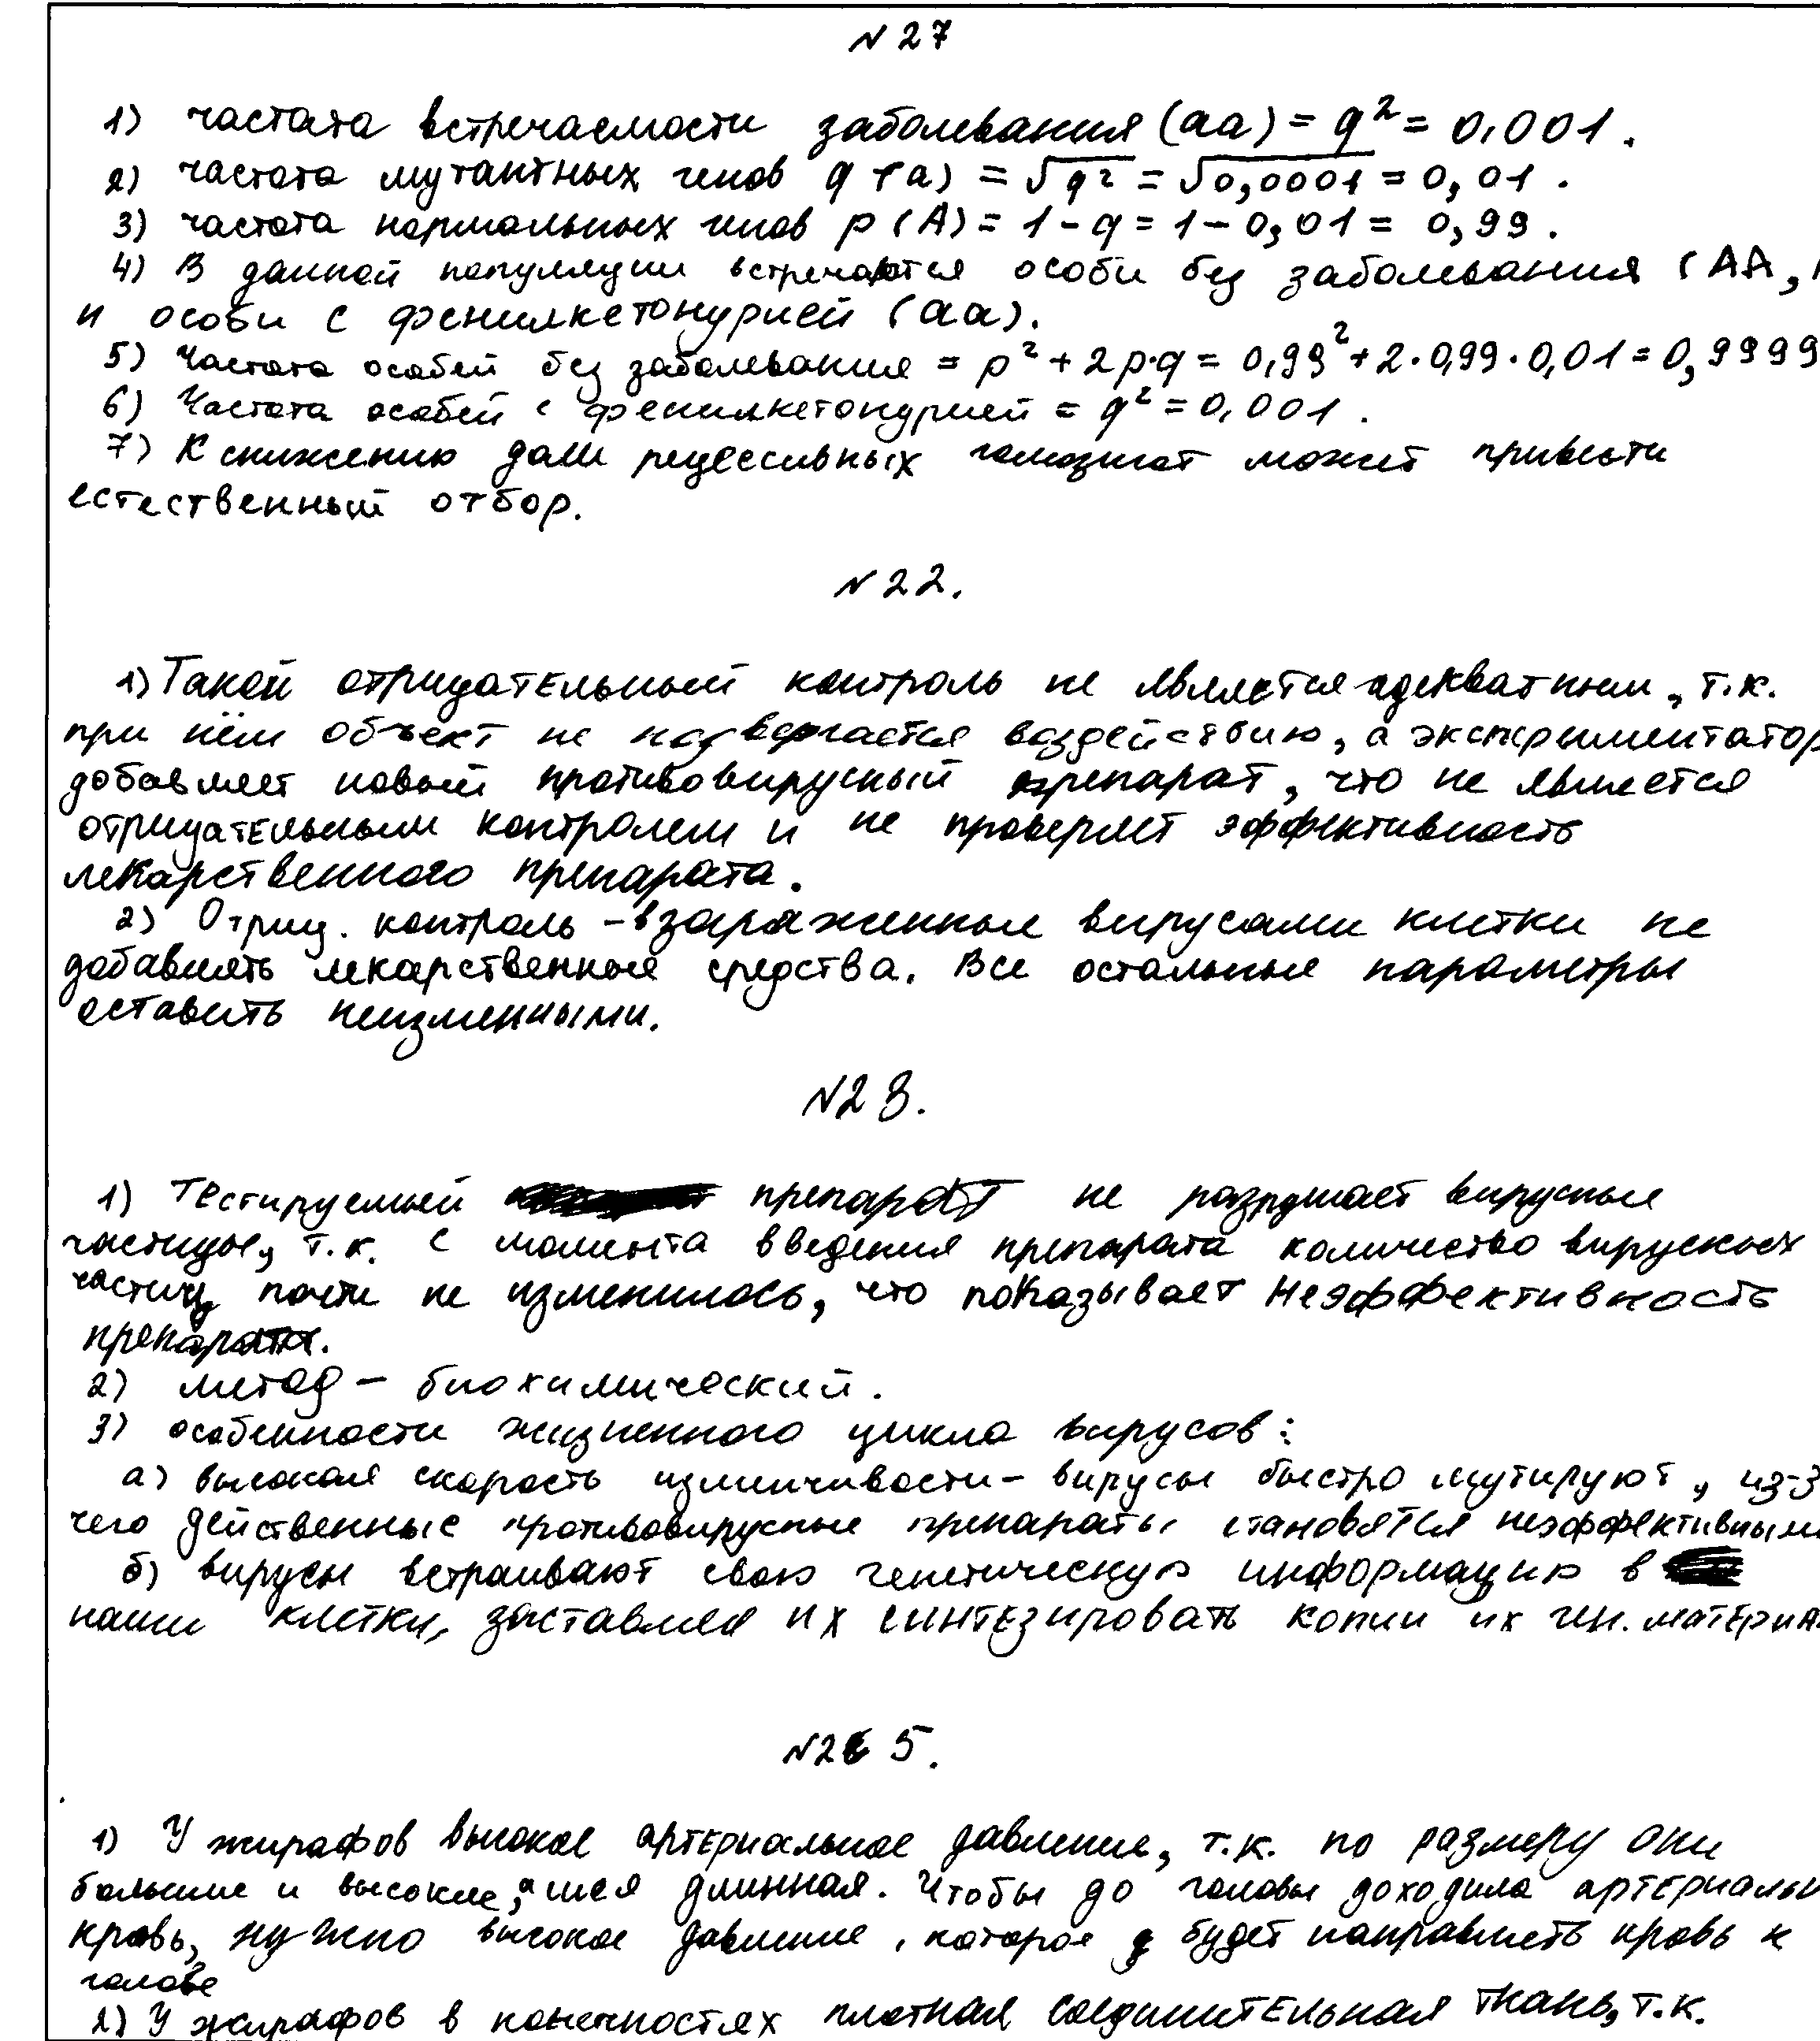 N 27
1) частата встречаемости заболевания (aa) = q² = 0,001.
2) частота мутантных генов q (a) = √q² = √0,0001 = 0,01.
3) частота нормальных генов p (A) = 1 - q = 1 - 0,01 = 0,99.
4) В данной популяции встречаются особи без заболевания (AA,
и особи с фенилкетонурией (aa).
5) Частота особей без заболевания = p² + 2p·q = 0,99² + 2·0,99·0,01 = 0,9999
6) Частота особей с фенилкетонурией = q² = 0,001.
7) К снижению доли рецессивных гомозигот может привести
естественный отбор.
N 22.
1) Такой отрицательный контроль не является адекватным, т.к.
при нём объект не подвергается воздействию, а экспериментатор
добавляет новый противовирусный препарат, что не является
отрицательным контролем и не проверяет эффективность
лекарственного препарата.
2) Отриц. контроль - в зараженные вирусами клетки не
добавлять лекарственные средства. Все остальные параметры
оставить неизменными.
N 23.
1) Тестируемый препарат не разрушает вирусные
частицы, т.к. с момента введения препарата количество вирусных
частиц почти не изменилось, что показывает неэффективность
препарата.
2) метод - биохимический.
3) особенности жизненного цикла вирусов:
а) высокая скорость изменчивости - вирусы быстро мутируют, из-з
чего действенные противовирусные препараты становятся неэффективными
б) вирусы встраивают свою генетическую информацию в
наши клетки, заставляя их синтезировать копии их ген. материа
N 25.
1) У жирафов высокое артериальное давление, т.к. по размеру они
большие и высокие, а шея длинная. Чтобы до головы доходила артериальн
кровь, нужно высокое давление, которое будет направлять кровь к
голове
2) У жирафов в конечностях плотная соединительная ткань, т.к.